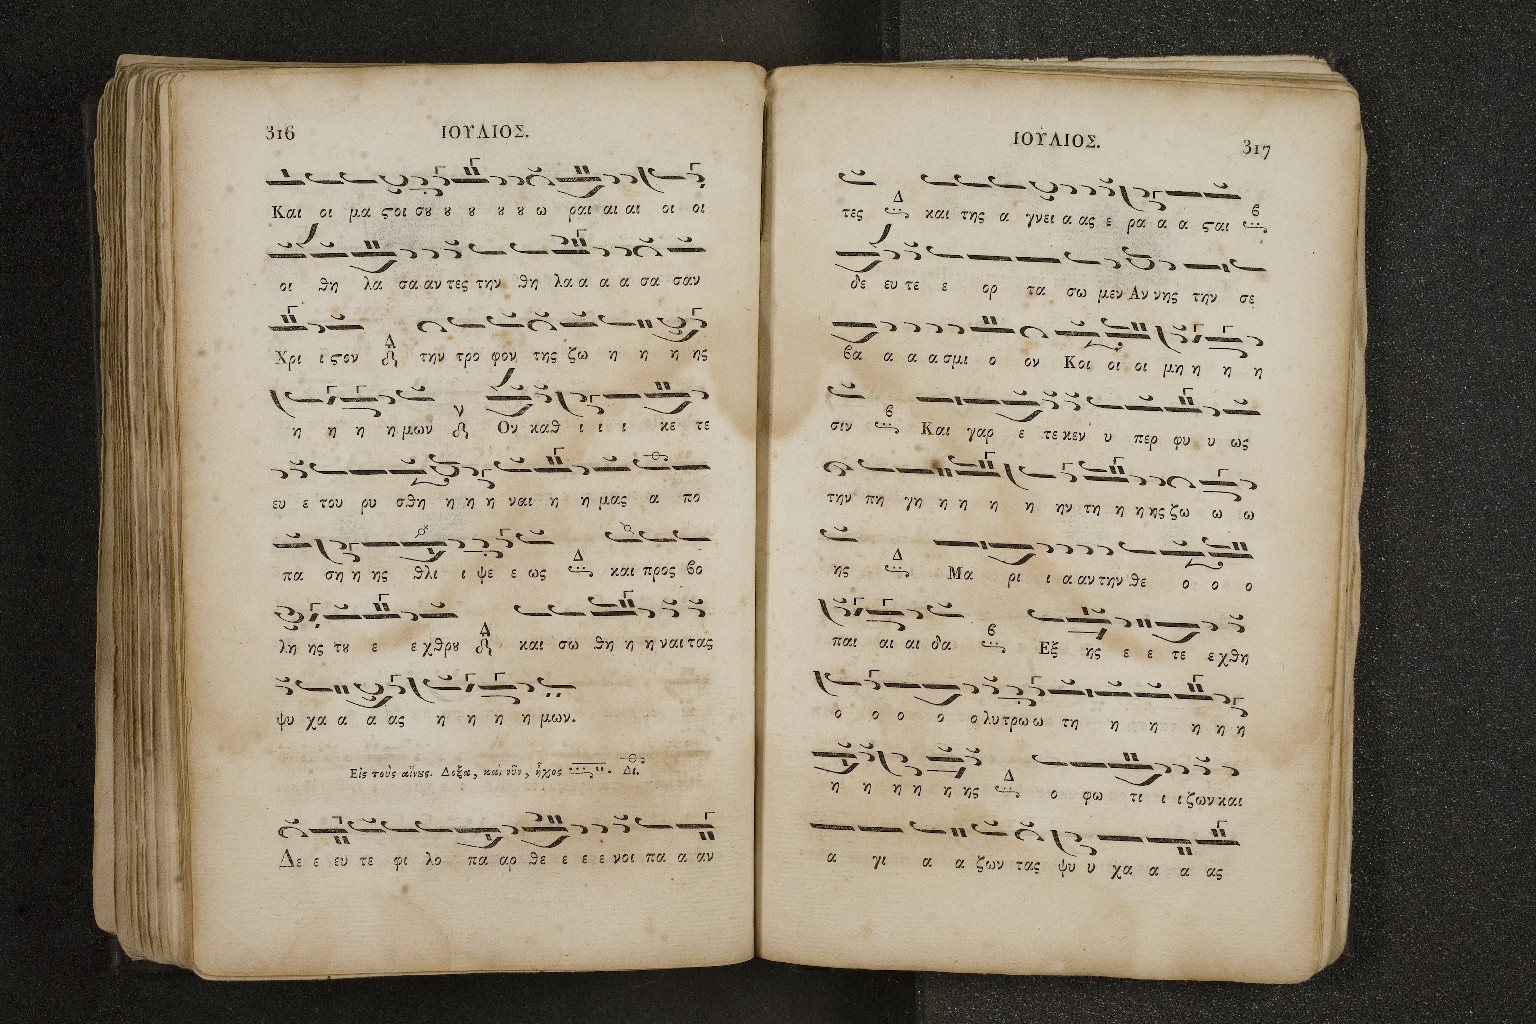 316
ΙΟΥΛΙΟΣ.
Και οι μα ϛοι σȣ ȣ ȣ ȣ ȣ ω ραι αι αι οι οι
οι θη λα σα αν τες την θη λα α α α σα σαν
Χρι ι ϛον Δ την τρο φον της ζω η η η ης
η η η η μων ν Ον καθ ι ι ι κε τε
ευ ε του ρυ σθη η η η ναι η η μας α πο
πα ση η ης θλι ι ψε ε ως Δ και προς βο
λη ης τȣ ε ε χθρȣ Δ και σω θη η η ναι τας
ψυ χα α α ας η η η η μων.
Εἰς τοὺς αἴνȣς. Δοξα, και νῦν, ἦχος Δι.
Δε ε ευ τε φι λο πα αρ θε ε ε ε νοι πα α αν
ΙΟΥΛΙΟΣ.
317
τες Δ και της α γνει α ας ε ρα α α ϛαι β
δε ευ τε ε ορ τα σω μεν Αν νης την σε
βα α α α σμι ο ον Κοι οι οι μη η η η
σιν β Και γαρ ε τε κεν υ περ φυ υ ως
την πη γη η η η η ην τη η η ης ζω ω ω
ης Δ Μα ρι ι α αν την θε ο ο ο
παι αι αι δα β Εξ ης ε ε τε ε χθη
ο ο ο ο ο λυ τρω ω τη η η η η η
η η η η η ης Δ ο φω τι ι ι ζων και
α γι α α ζων τας ψυ υ χα α α ας